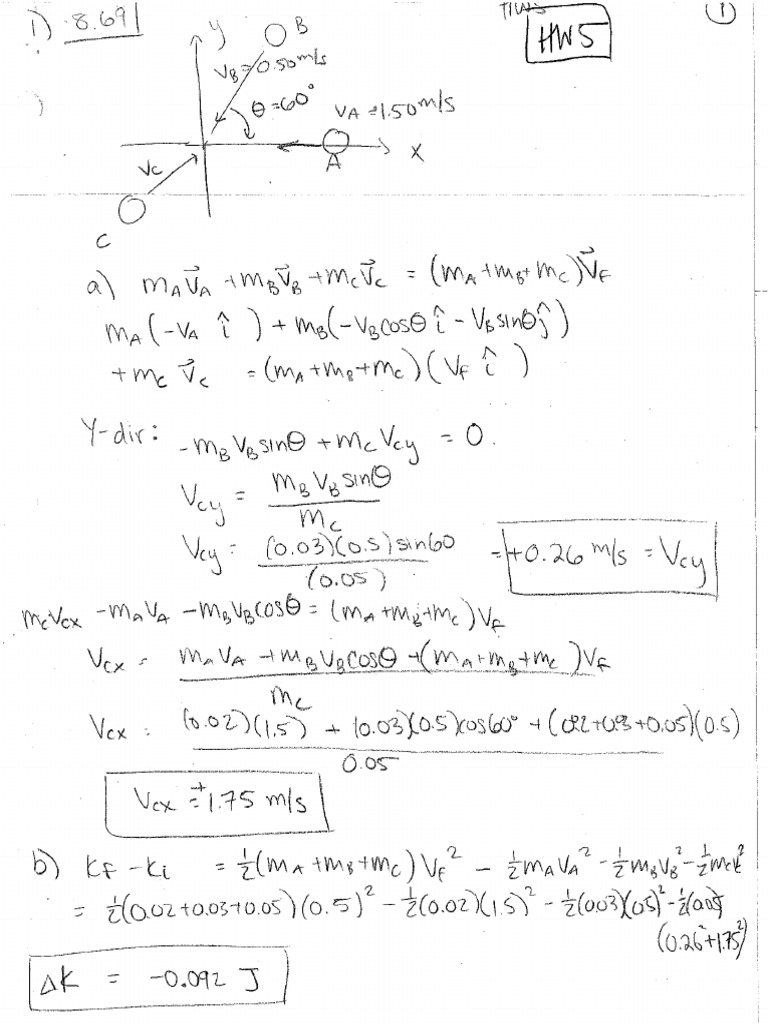 HW5
1) 8.69
HW5
①
y
B
V_B = 0.50 m/s
θ = 60°
V_A = 1.50 m/s
x
A
V_C
C
a) m_A V⃗_A + m_B V⃗_B + m_C V⃗_C = (m_A + m_B + m_C) V⃗_f
m_A(-V_A î) + m_B(-V_B cosθ î - V_B sinθ ĵ)
+ m_C V⃗_C = (m_A + m_B + m_C)(V_f î)
Y-dir: -m_B V_B sinθ + m_C V_Cy = 0.
V_Cy = m_B V_B sinθ / m_C
V_Cy = (0.03)(0.5) sin60 / (0.05) = +0.26 m/s = V_Cy
m_C V_Cx - m_A V_A - m_B V_B cosθ = (m_A + m_B + m_C) V_f
V_Cx = m_A V_A + m_B V_B cosθ + (m_A + m_B + m_C) V_f / m_C
V_Cx = (0.02)(1.5) + (0.03)(0.5) cos60° + (0.2+0.3+0.05)(0.5) / 0.05
V_Cx = +1.75 m/s
b) Kf - Ki = ½(m_A + m_B + m_C) V_f² - ½ m_A V_A² - ½ m_B V_B² - ½ m_C V_C²
= ½(0.02+0.03+0.05)(0.5)² - ½(0.02)(1.5)² - ½(0.03)(0.5)² - ½(0.05)
(0.26² + 1.75²)
ΔK = -0.092 J